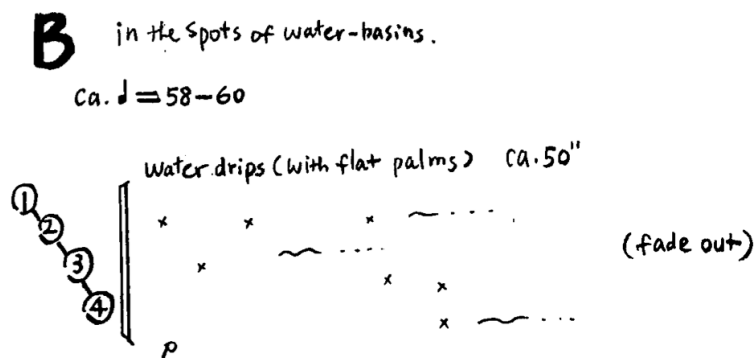 B in the spots of water-basins.
ca. ♩=58-60
water drips (with flat palms) ca. 50"
①
②
③
④
(fade out)
p